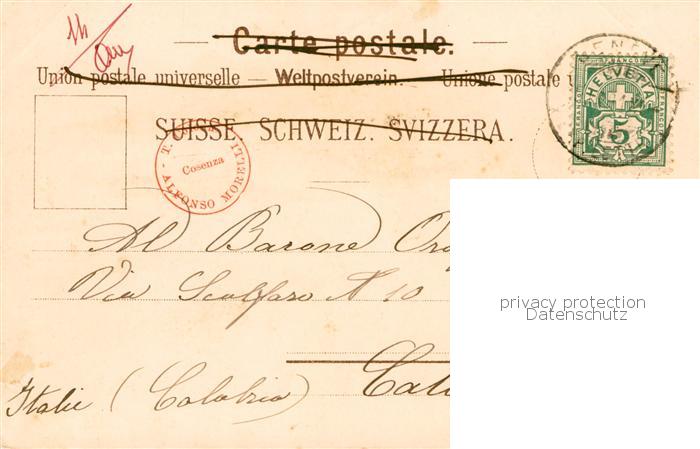 Carte postale.
Union postale universelle — Weltpostverein. — Unione postale
SUISSE. SCHWEIZ. SVIZZERA.
FRANCO
HELVETIA
5
T. ALFONSO MORELLI
Cosenza
Al Barone
Via Scalfaro N 10
Italie (Calabria)
privacy protection
Datenschutz